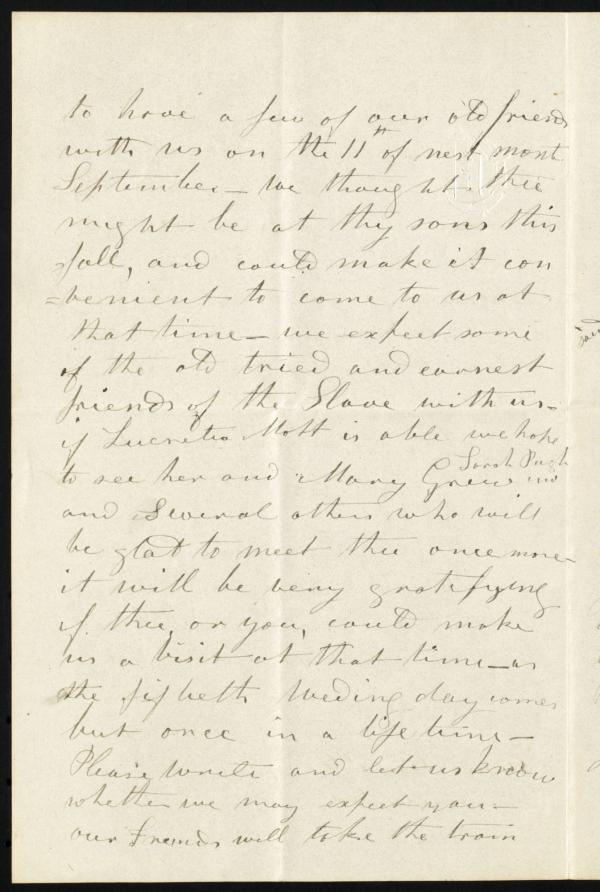 to have a few of our old friends
with us on the 11th of next month
September - we thought thee
might be at thy sons this
fall, and could make it con
=venient to come to us at
that time - we expect some
of the old tried and earnest
friends of the Slave with us -
if Lucretia Mott is able we hope
Sarah Pugh
to see her and Mary Grew
and several others who will
be glad to meet thee once more -
it will be very gratifying
if thee, or you, could make
us a visit at that time - as
the fiftieth Weding day comes
but once in a life time -
Please write and let us know
whether we may expect you -
our Friends will take the train